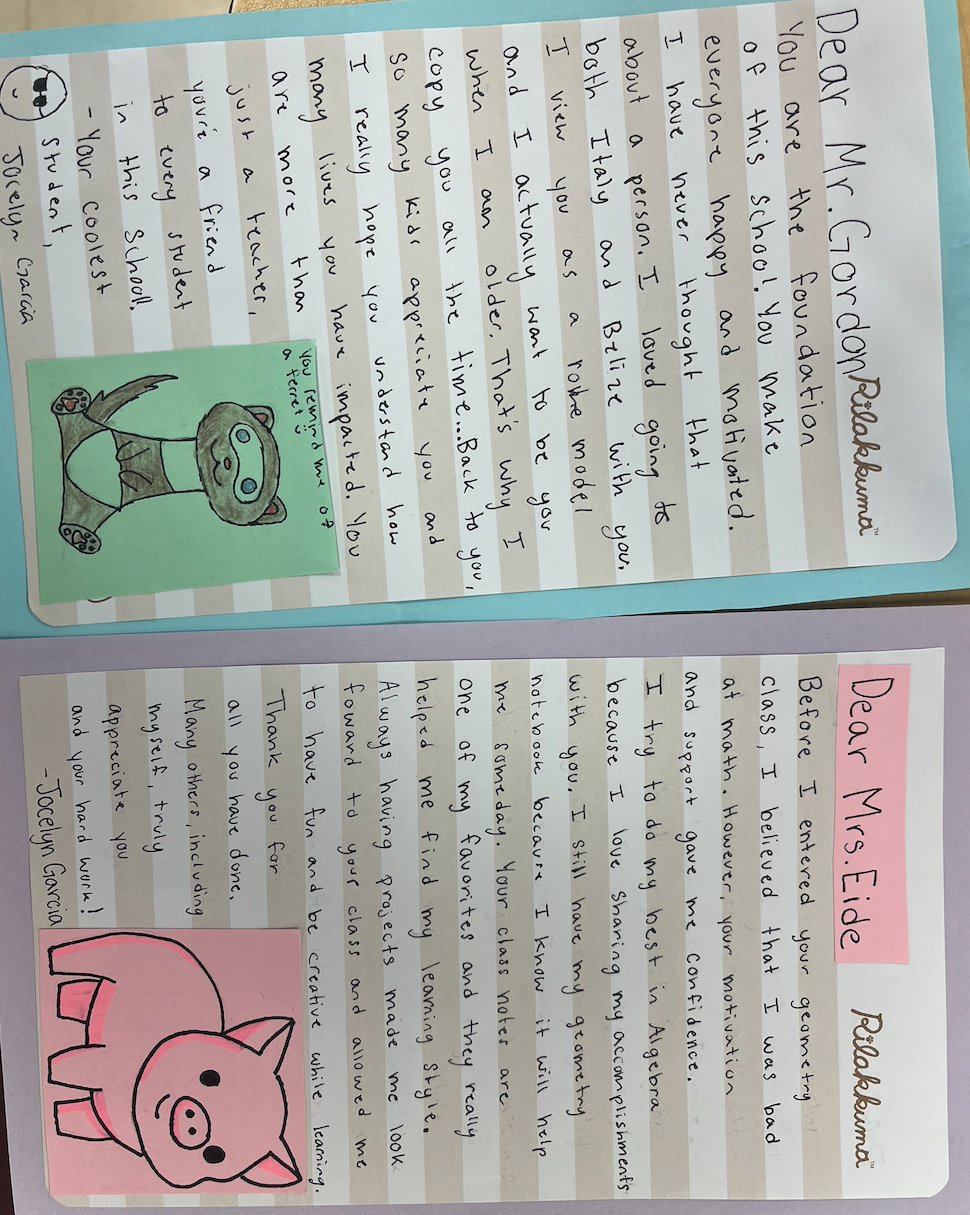 Dear Mr. Gordon
Rilakkuma™
You are the foundation
of this school. You make
everyone happy and motivated.
I have never thought that
about a person. I loved going to
both Italy and Belize with you.
I view you as a role model
and I actually want to be you
when I am older. That's why I
copy you all the time...Back to you,
so many kids appreciate you and
I really hope you understand how
many lives you have impacted. You
are more than
just a teacher,
you're a friend
to every student
in this school!
- Your coolest
student,
Jocelyn Garcia
you remind me of
a ferret!
Dear Mrs. Eide
Rilakkuma™
Before I entered your geometry
class, I believed that I was bad
at math. However, your motivation
and support gave me confidence.
I try to do my best in Algebra
because I love sharing my accomplishments
with you. I still have my geometry
notebook because I know it will help
me someday. Your class notes are
one of my favorites and they really
helped me find my learning style.
Always having projects made me look
foward to your class and allowed me
to have fun and be creative while learning.
Thank you for
all you have done.
Many others, including
myself, truly
appreciate you
and your hard work!
-Jocelyn Garcia